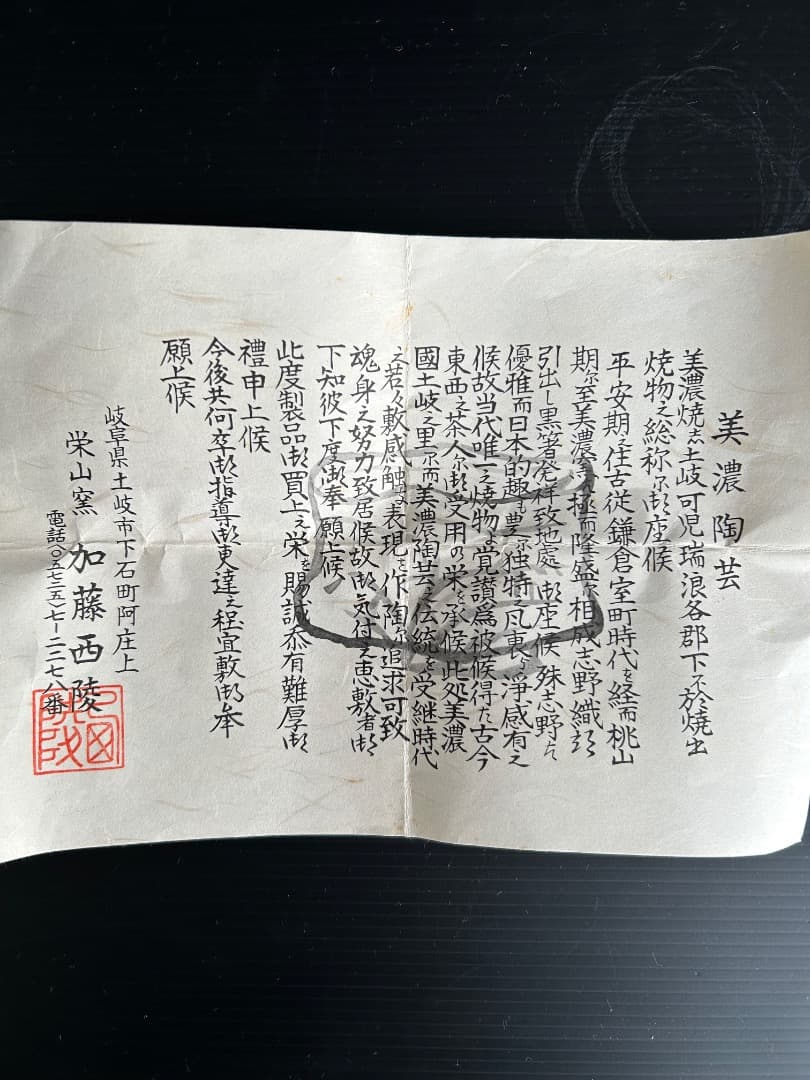 美濃陶芸
美濃焼ハ土岐可児瑞浪各郡下ニ於焼出
焼物之総称ニ御座候
平安期之往古従鎌倉室町時代を経而桃山
期ニ至美濃窯極而隆盛ニ相成志野織部
引出し黒等発祥致地處ニ御座候 殊志野と
優雅而日本的趣も豊ニ独特之風意と浄感有之
候故当代唯一之焼物と賞讃為被候得た古今
東西之茶人ニ御受用の栄を承候此処美濃
國土岐之里ニ而美濃陶芸之伝統を受継時代
之若々敷感触を表現を作陶ニ追求可致
魂身之努力致居候故御気付之恵敷者御
下知彼下度御奉願上候
此度製品御買上之栄を賜誠忝有難厚御
禮申上候
今後共何卒御指導御更達之程宜敷御奉
願上候
岐阜県土岐市下石町阿庄上
栄山窯 加藤西陵
電話〇五七二(五)七-二二七八番